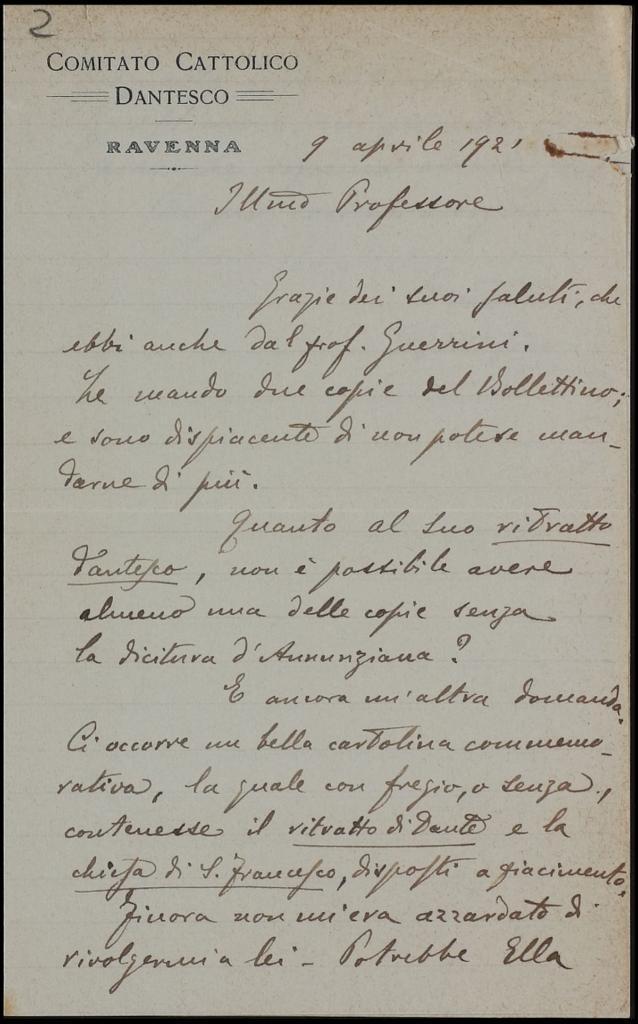 2
COMITATO CATTOLICO
DANTESCO
RAVENNA
9 aprile 1921
Illmo Professore
Grazie dei suoi saluti, che
ebbi anche dal prof. Guerrini.
Le mando due copie del Bollettino;
e sono dispiacente di non potese man-
darne di più.
Quanto al suo ritratto
dantesco, non è possibile avere
almeno una delle copie senza
la dicitura d'Annunziana?
E ancora un'altra domanda.
Ci occorre un bella cartolina commemo-
rativa, la quale con fregio, o senza,
contenesse il ritratto di Dante e la
chiesa di S. Francesco, disposti a piacimento.
Finora non mi era azzardato di
rivolgermi a lei - Potrebbe Ella